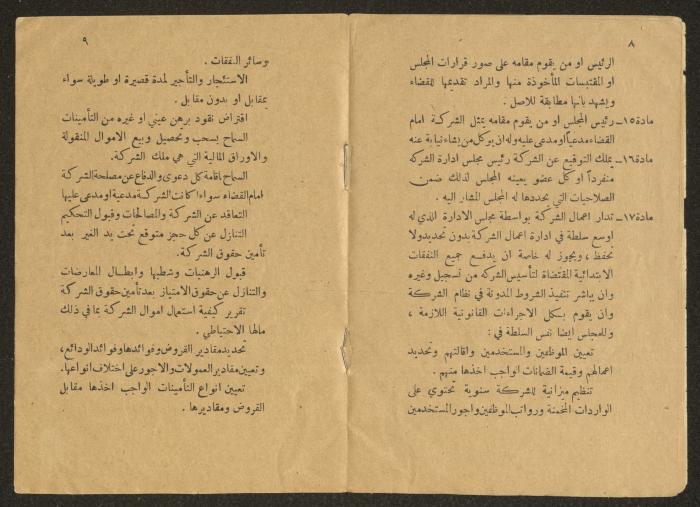 ٨
الرئيس او من يقوم مقامه على صور قرارات المجلس
او المقتبسات المأخوذة منها والمراد تقديمها للقضاء
ويشهد بانها مطابقة للاصل.
مادة ١٥ـ رئيس المجلس او من يقوم مقامه يمثل الشركة امام
القضاء مدعياً او مدعى عليه وله ان يوكل من يشاء نيابة عنه
مادة ١٦ـ يملك التوقيع عن الشركة رئيس مجلس ادارة الشركة
منفرداً او كل عضو يعينه المجلس لذلك ضمن
الصلاحيات التي يحددها له المجلس المشار اليه .
مادة ١٧ـ تدار اعمال الشركة بواسطة مجلس الادارة الذي له
اوسع سلطة في ادارة اعمال الشركة بدون تحديد ولا
تحفظ ، ويجوز له خاصة ان يدفع جميع النفقات
الابتدائية المقتضاة لتأسيس الشركه من تسجيل وغيره
وان يباشر تنفيذ الشروط المدونة في نظام الشركة
وان يقوم بكل الاجراءات القانونية اللازمة ،
وللمجلس ايضا نفس السلطة في :
تعيين الموظفين والمستخدمين واقالتهم وتحديد
اعمالهم وقيمة الضمانات الواجب اخذها منهم .
تنظيم ميزانية للشركة سنوية تحتوي على
الواردات المخمنة ورواتب الموظفين واجور المستخدمين
٩
وسائر النفقات .
الاستئجار والتأجير لمدة قصيرة او طويلة سواء
بمقابل او بدون مقابل .
اقتراض نقود برهن عيني او غيره من التأمينات
السماح بسحب وتحصيل وبيع الاموال المنقولة
والاوراق المالية التي هي ملك الشركة.
السماح باقامة كل دعوى والدفاع عن مصلحة الشركة
امام القضاء سواء اكانت الشركة مدعية او مدعى عليها
التعاقد عن الشركة والمصالحات وقبول التحكيم
التنازل عن كل حجز متوقع تحت يد الغير بعد
تأمين حقوق الشركة.
قبول الرهنيات وشطبها وابطال المعارضات
والتنازل عن حقوق الامتياز بعد تأمين حقوق الشركة
تقرير كيفية استعمال اموال الشركة بما في ذلك
مالها الاحتياطي .
تحديد مقادير القروض وفوائدها وفوائد الودائع،
وتعيين مقادير العمولات والاجور على اختلاف انواعها.
تعيين انواع التأمينات الواجب اخذها مقابل
القروض ومقاديرها .